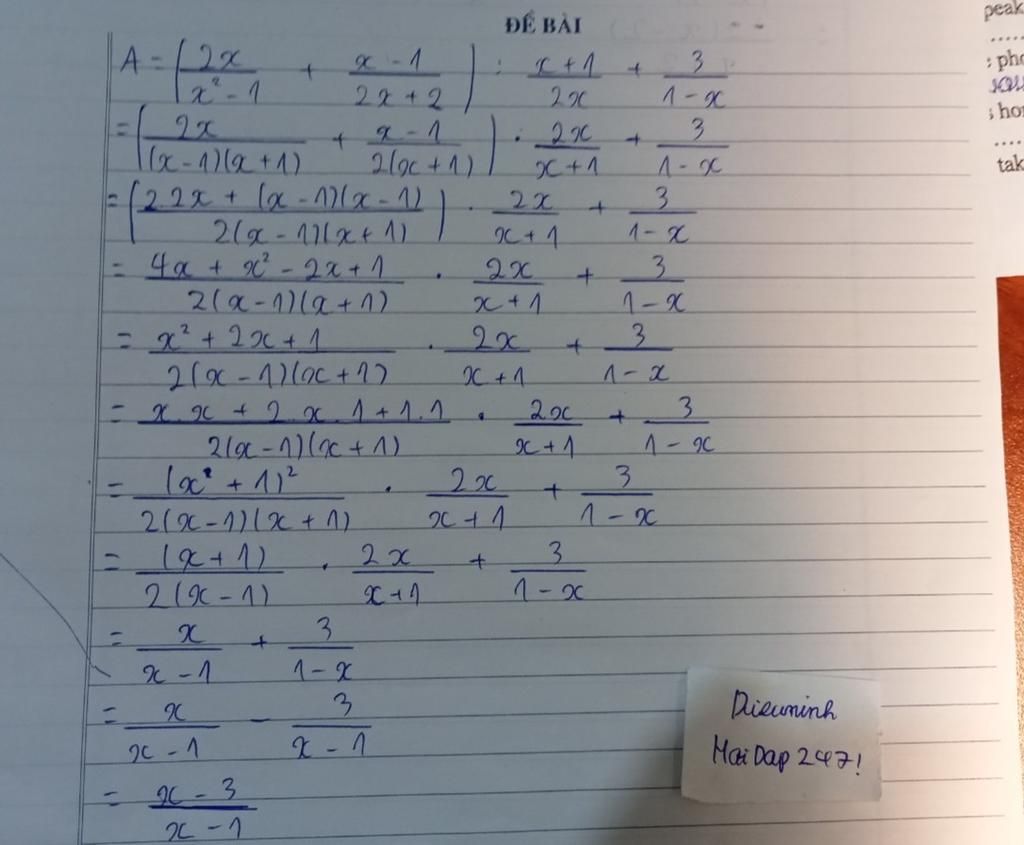 ĐỀ BÀI
A = (2x/(x² - 1) + (x - 1)/(2x + 2)) : (x + 1)/(2x) + 3/(1 - x)
= (2x/((x - 1)(x + 1)) + (x - 1)/(2(x + 1))) . 2x/(x + 1) + 3/(1 - x)
= ((2.2x + (x - 1)(x - 1))/(2(x - 1)(x + 1))) . 2x/(x + 1) + 3/(1 - x)
= (4x + x² - 2x + 1)/(2(x - 1)(x + 1)) . 2x/(x + 1) + 3/(1 - x)
= (x² + 2x + 1)/(2(x - 1)(x + 1)) . 2x/(x + 1) + 3/(1 - x)
= (x.x + 2.x.1 + 1.1)/(2(x - 1)(x + 1)) . 2x/(x + 1) + 3/(1 - x)
= (x² + 1)²/(2(x - 1)(x + 1)) . 2x/(x + 1) + 3/(1 - x)
= (x + 1)/(2(x - 1)) . 2x/(x + 1) + 3/(1 - x)
= x/(x - 1) + 3/(1 - x)
= x/(x - 1) - 3/(x - 1)
= (x - 3)/(x - 1)
Dieuninh
HoiDap247!
peak
: pho
; hor
tak